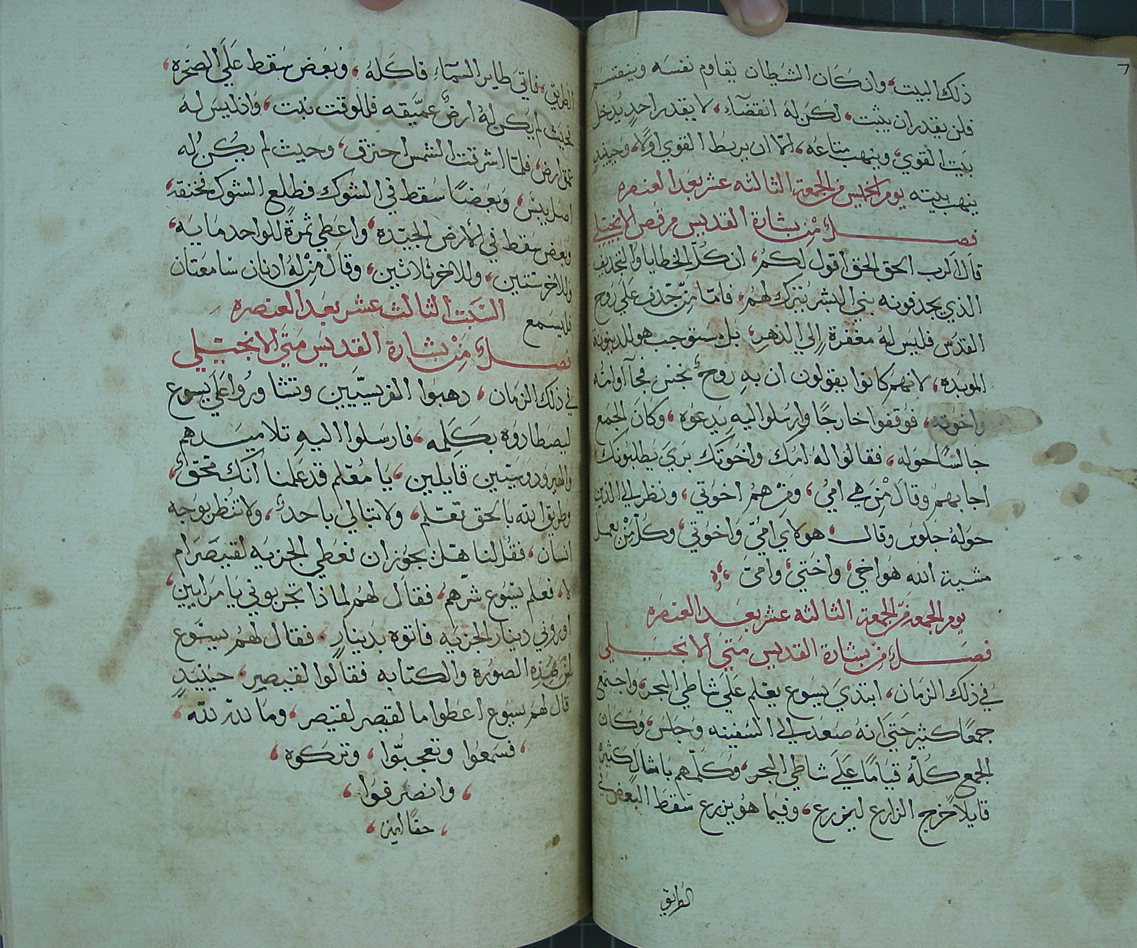 ذلك البيت، وان كان الشيطان يقاوم نفسه وينقسم
فلن يقدر ان يثبت، لكن له انقضآء، لا يقدر احدٍ يدخل
بيت القوي، وينهب متاعه، الّا ان يربط القوي اولًا، وحينيذٍ
ينهب بيته يوم الخميس من الجمعة الثالثه عشر بعد العنصره
فصلٌ من بشارة القديس مرقص الانجيلي
قال الرب الحق الحق اقول لكم، ان كلّ الخطايا والتجديف
الذي يجدفونه بني البشر يترك لهم، فامّا من جدف علي روح
القدس فليس له مغفرة إلي الدهر، بل يستوجب هو للدينونة
الموبده، لانهم كانوا يقولون ان به روحٌ نجس فجآ امه
واخوته، فوقفوا خارجًا وارسلوا اليه يدعوه، وكان الجمع
جالسًا حوله، فقالوا له امك واخوتك برىّ يطلبونك،
اجابهم وقال من هي امي، ومن هم اخوتي، ونظر الي الذين
حوله جلوس وقال هولاي امّي واخوتي، وكل من يعمل
مشية الله هو اخي، واختي، وامي
يوم الجمعه من الجمعة الثالثه عشر بعد العنصره
فصلٌ من بشارة القديس متي الانجيلي
في ذلك الزمان، ابتدي يسوع يعلم علَي شاطي البحر، واجتمع
جمعًا كثير حتي انه صعد الي السفينه وجلس، وكان
الجمع كلّه قيامًا علَي شاطي البحر، وكلّمهم بامثال كثيرة
قايلًا خرج الزارع ليزرع، وفيما هو يزرع سقط البعض في
الطريق
الطريق، فاتي طاير السمآء فاكله، وبعض سقط علَي الصخره
بحيث لم يكن له ارض عميقه فللوقت نبت، واذ ليس له
عمق ارض، فلمّا اشرقت الشمس احترق، وحيث لم يكن له
اصل يبس، وبعضًا سقط في الشوك فطلع الشوك فخنقه،
وبعض سقط في الارض الجيّده، واعطي ثمرةً للواحد مايه،
وللاخر ستين، وللاخر ثلاثين، وقال من له اذنان سامعتان
فليسمع السبت الثالث عشر بعد العنصره
فصلٌ من بشارة القديس متي الانجيلي
في ذلك الزمان، ذهبوا الفرسيّين وتشاوروا علي يسوع
ليصطاروه بكلمه، فارسلوا اليه تلاميدهم
والهيرودوسيين قايلين، يا معلم قد علمنا انك محقٌ،
وطريق الله بالحق تعلم، ولا تبالي باحدٌ، ولا تنظر بوجه
انسان، فقل لنا هل يجوز ان نعطي الجزيه لقيصر ام
لا، فعلم يسوع شرهم، فقال لهم لماذا تجربوني يا مرايين،
اوروني دينار الجزيه فاتوه بدينار، فقال لهم يسوع
لمن هذه الصوره والكتابه فقالوا لقيصر، حينيدٍ
قال لهم يسوع اعطوا ما لقيصر لقيصر، وما لله لله،
فسمعوا وتعجبوّا، وتركوه
وانصرفوا